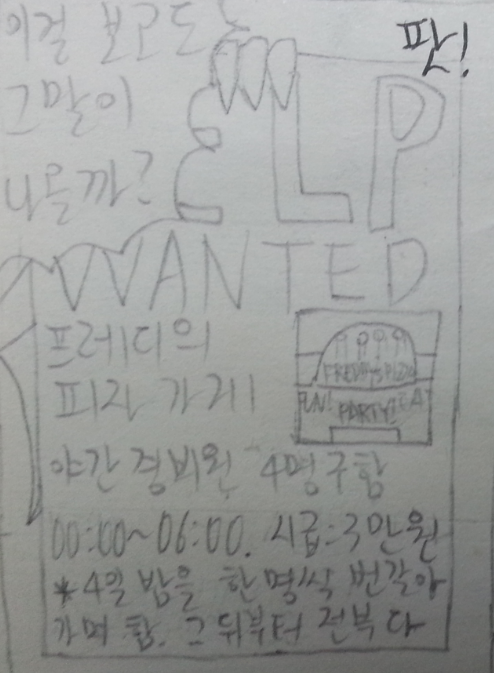 이걸 보고도
그 말이
나올까?
판!
ELP
WANTED
프레디의
피자 가게!
FREDDY'S PIZZA
FUN! PARTY! EAT
야간 경비원 4명 구함
00:00~06:00. 시급:3만원
*4일 밤을 한 명씩 번갈아
가며 함. 그 뒤부터 전부 다